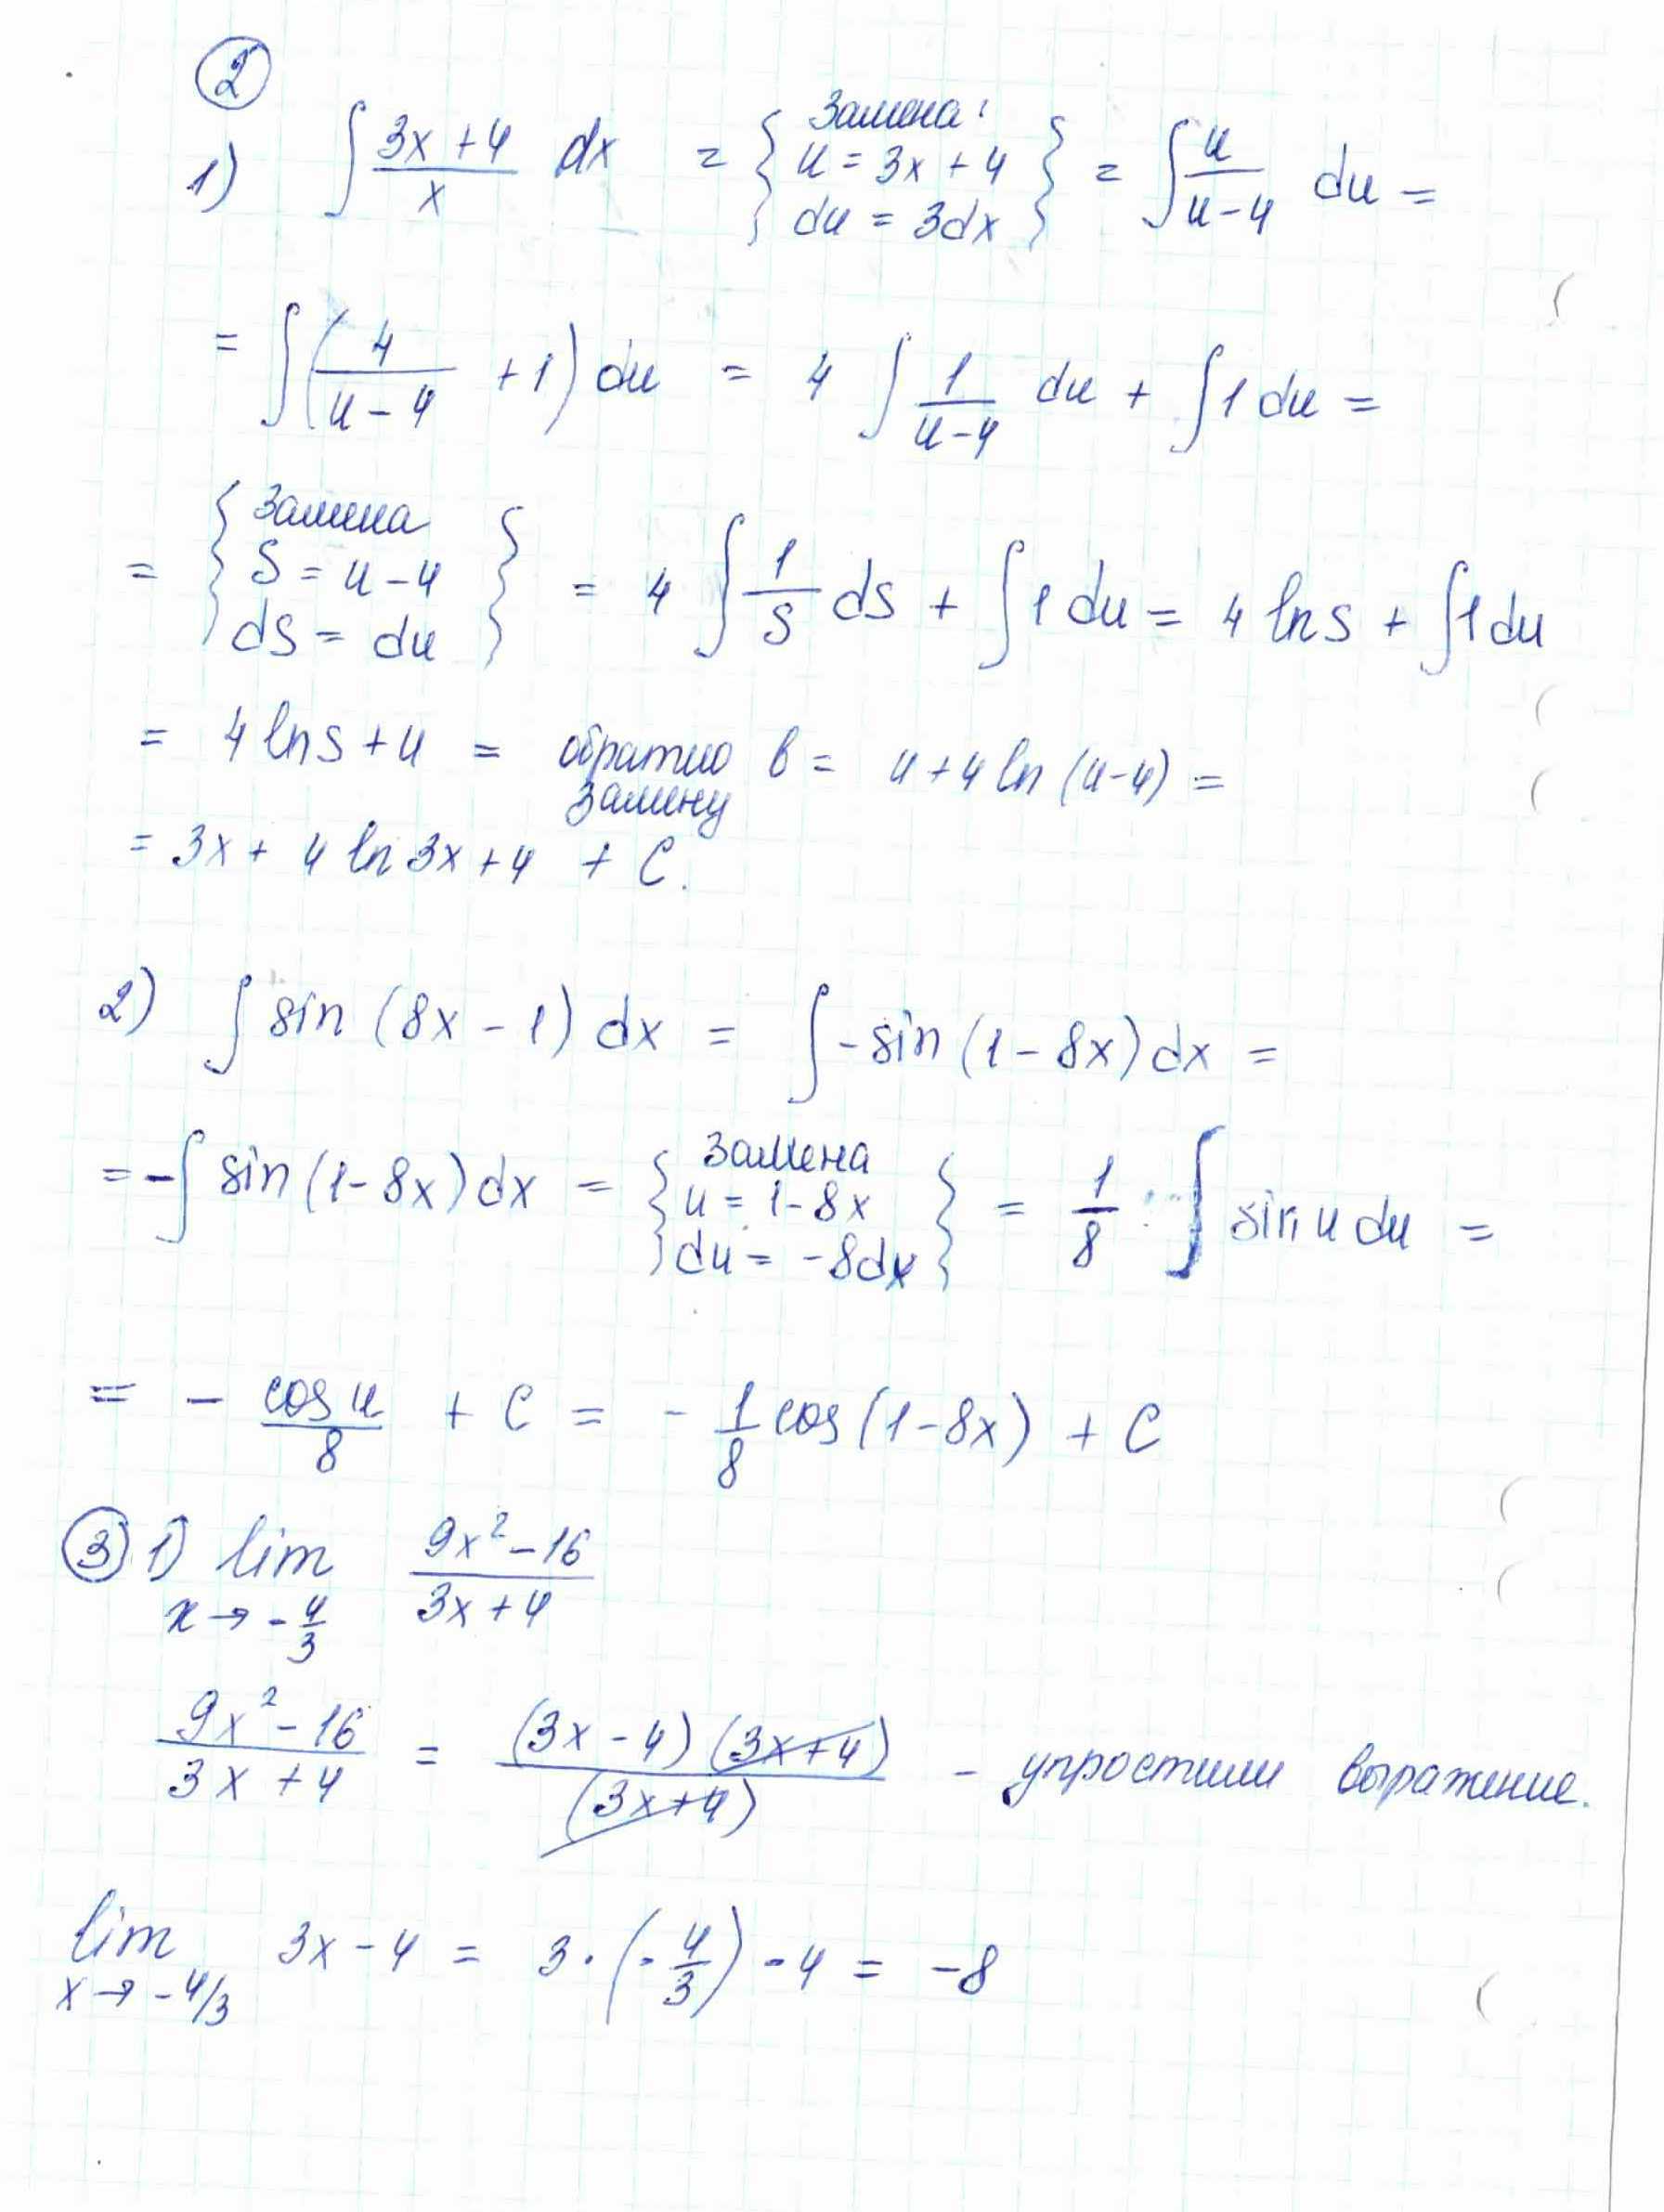 ②
1) ∫ (3x+4)/x dx = { Замена: u = 3x + 4 du = 3dx } = ∫ u/(u-4) du =
= ∫ (4/(u-4) + 1) du = 4 ∫ 1/(u-4) du + ∫ 1 du =
= { Замена S = u-4 dS = du } = 4 ∫ 1/S dS + ∫ 1 du = 4 ln S + ∫ 1 du
= 4 ln S + u = обратно в замену = u + 4 ln (u-4) =
= 3x + 4 ln 3x+4 + C.
2) ∫ sin (8x - 1) dx = ∫ - sin (1 - 8x) dx =
= - ∫ sin (1-8x) dx = { Замена u = 1-8x du = -8dx } = 1/8 ∫ sin u du =
= - cos u/8 + C = - 1/8 cos (1-8x) + C
③ 1) lim x→ -4/3 (9x² - 16)/(3x + 4)
(9x² - 16)/(3x + 4) = (3x - 4) (3x+4)/(3x+4) - упростили выражение.
lim x→ -4/3 3x - 4 = 3 · (-4/3) - 4 = -8